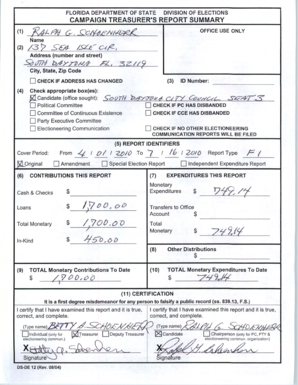 FLORIDA DEPARTMENT OF STATE DIVISION OF ELECTIONS
CAMPAIGN TREASURER'S REPORT SUMMARY
(1) RALPH G. SCHOENHERR
Name
OFFICE USE ONLY
(2) 137 SEA ISLE CIR.
Address (number and street)
SOUTH DAYTONA FL. 32119
City, State, Zip Code
CHECK IF ADDRESS HAS CHANGED (3) ID Number:
(4) Check appropriate box(es):
Candidate (office sought): SOUTH DAYTONA CITY COUNCIL SEAT 3
Political Committee CHECK IF PC HAS DISBANDED
Committee of Continuous Existence CHECK IF CCE HAS DISBANDED
Party Executive Committee
Electioneering Communication CHECK IF NO OTHER ELECTIONEERING
COMMUNICATION REPORTS WILL BE FILED
(5) REPORT IDENTIFIERS
Cover Period: From 4 / 01 / 2010 To 7 / 16 / 2010 Report Type: F1
Original Amendment Special Election Report Independent Expenditure Report
(6) CONTRIBUTIONS THIS REPORT
(7) EXPENDITURES THIS REPORT
Cash & Checks $
Monetary
Expenditures $ 749.14
Loans $ 1,700.00
Transfers to Office
Account $
Total Monetary $ 1,700.00
Total
Monetary $ 749.14
In-Kind $ 450.00
(8) Other Distributions
$
(9) TOTAL Monetary Contributions To Date
$ 1,700.00
(10) TOTAL Monetary Expenditures To Date
$ 749.14
(11) CERTIFICATION
It is a first degree misdemeanor for any person to falsify a public record (ss. 839.13, F.S.)
I certify that I have examined this report and it is true, correct, and complete.
I certify that I have examined this report and it is true, correct, and complete.
(Type name) BETTY A SCHOENHERR
(Type name) RALPH G. SCHOENHERR
Individual (only for electioneering commun.) Treasurer Deputy Treasurer
Candidate Chairperson (only for PC, PTY & electioneering commun. organization)
X
Signature
X
Signature
DS-DE 12 (Rev. 08/04)